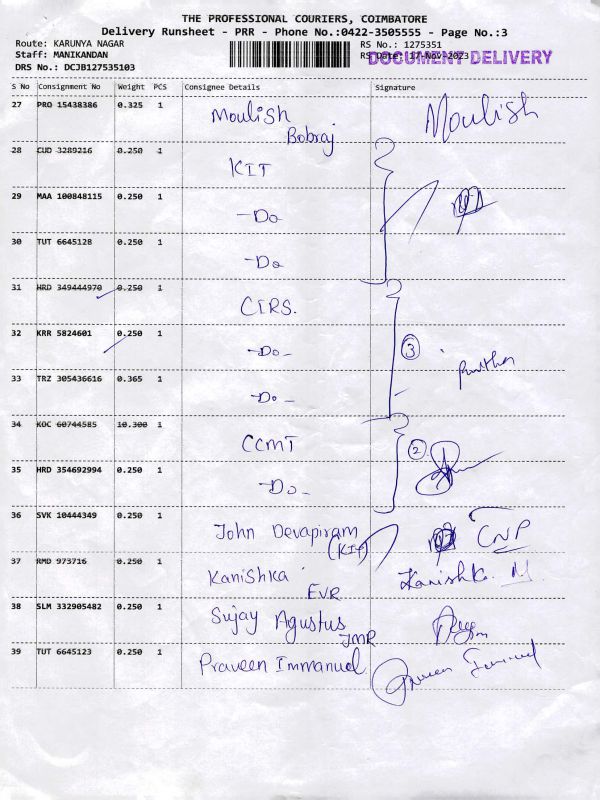 THE PROFESSIONAL COURIERS, COIMBATORE
Delivery Runsheet - PRR - Phone No.:0422-3505555 - Page No.:3
Route: KARUNYA NAGAR RS No.: 1275351
Staff: MANIKANDAN RS Date: 17-Nov-2023 DOCUMENT DELIVERY
DRS No.: DCJB127535103
S No Consignment No Weight PCS Consignee Details Signature
27 PRO 15438386 0.325 1 Moulish Moulish
Bobraj
28 CUD 3289216 0.250 1 KIT
29 MAA 100848115 0.250 1 -Do
30 TUT 6645128 0.250 1 -Do
31 HRD 349444970 0.250 1 CIRS.
32 KRR 5824601 0.250 1 -Do- 3
33 TRZ 305436616 0.365 1 -Do-
34 KOC 60744585 10.300 1 CCMT 2
35 HRD 354692994 0.250 1 -Do-
36 SVK 10444349 0.250 1 John Devapiram CNP
(KIT)
37 RMD 973716 0.250 1 Kanishka Kanishka M
EVR
38 SLM 332905482 0.250 1 Sujay Agustus
JMR
39 TUT 6645123 0.250 1 Praveen Immanuel Praveen Immanuel